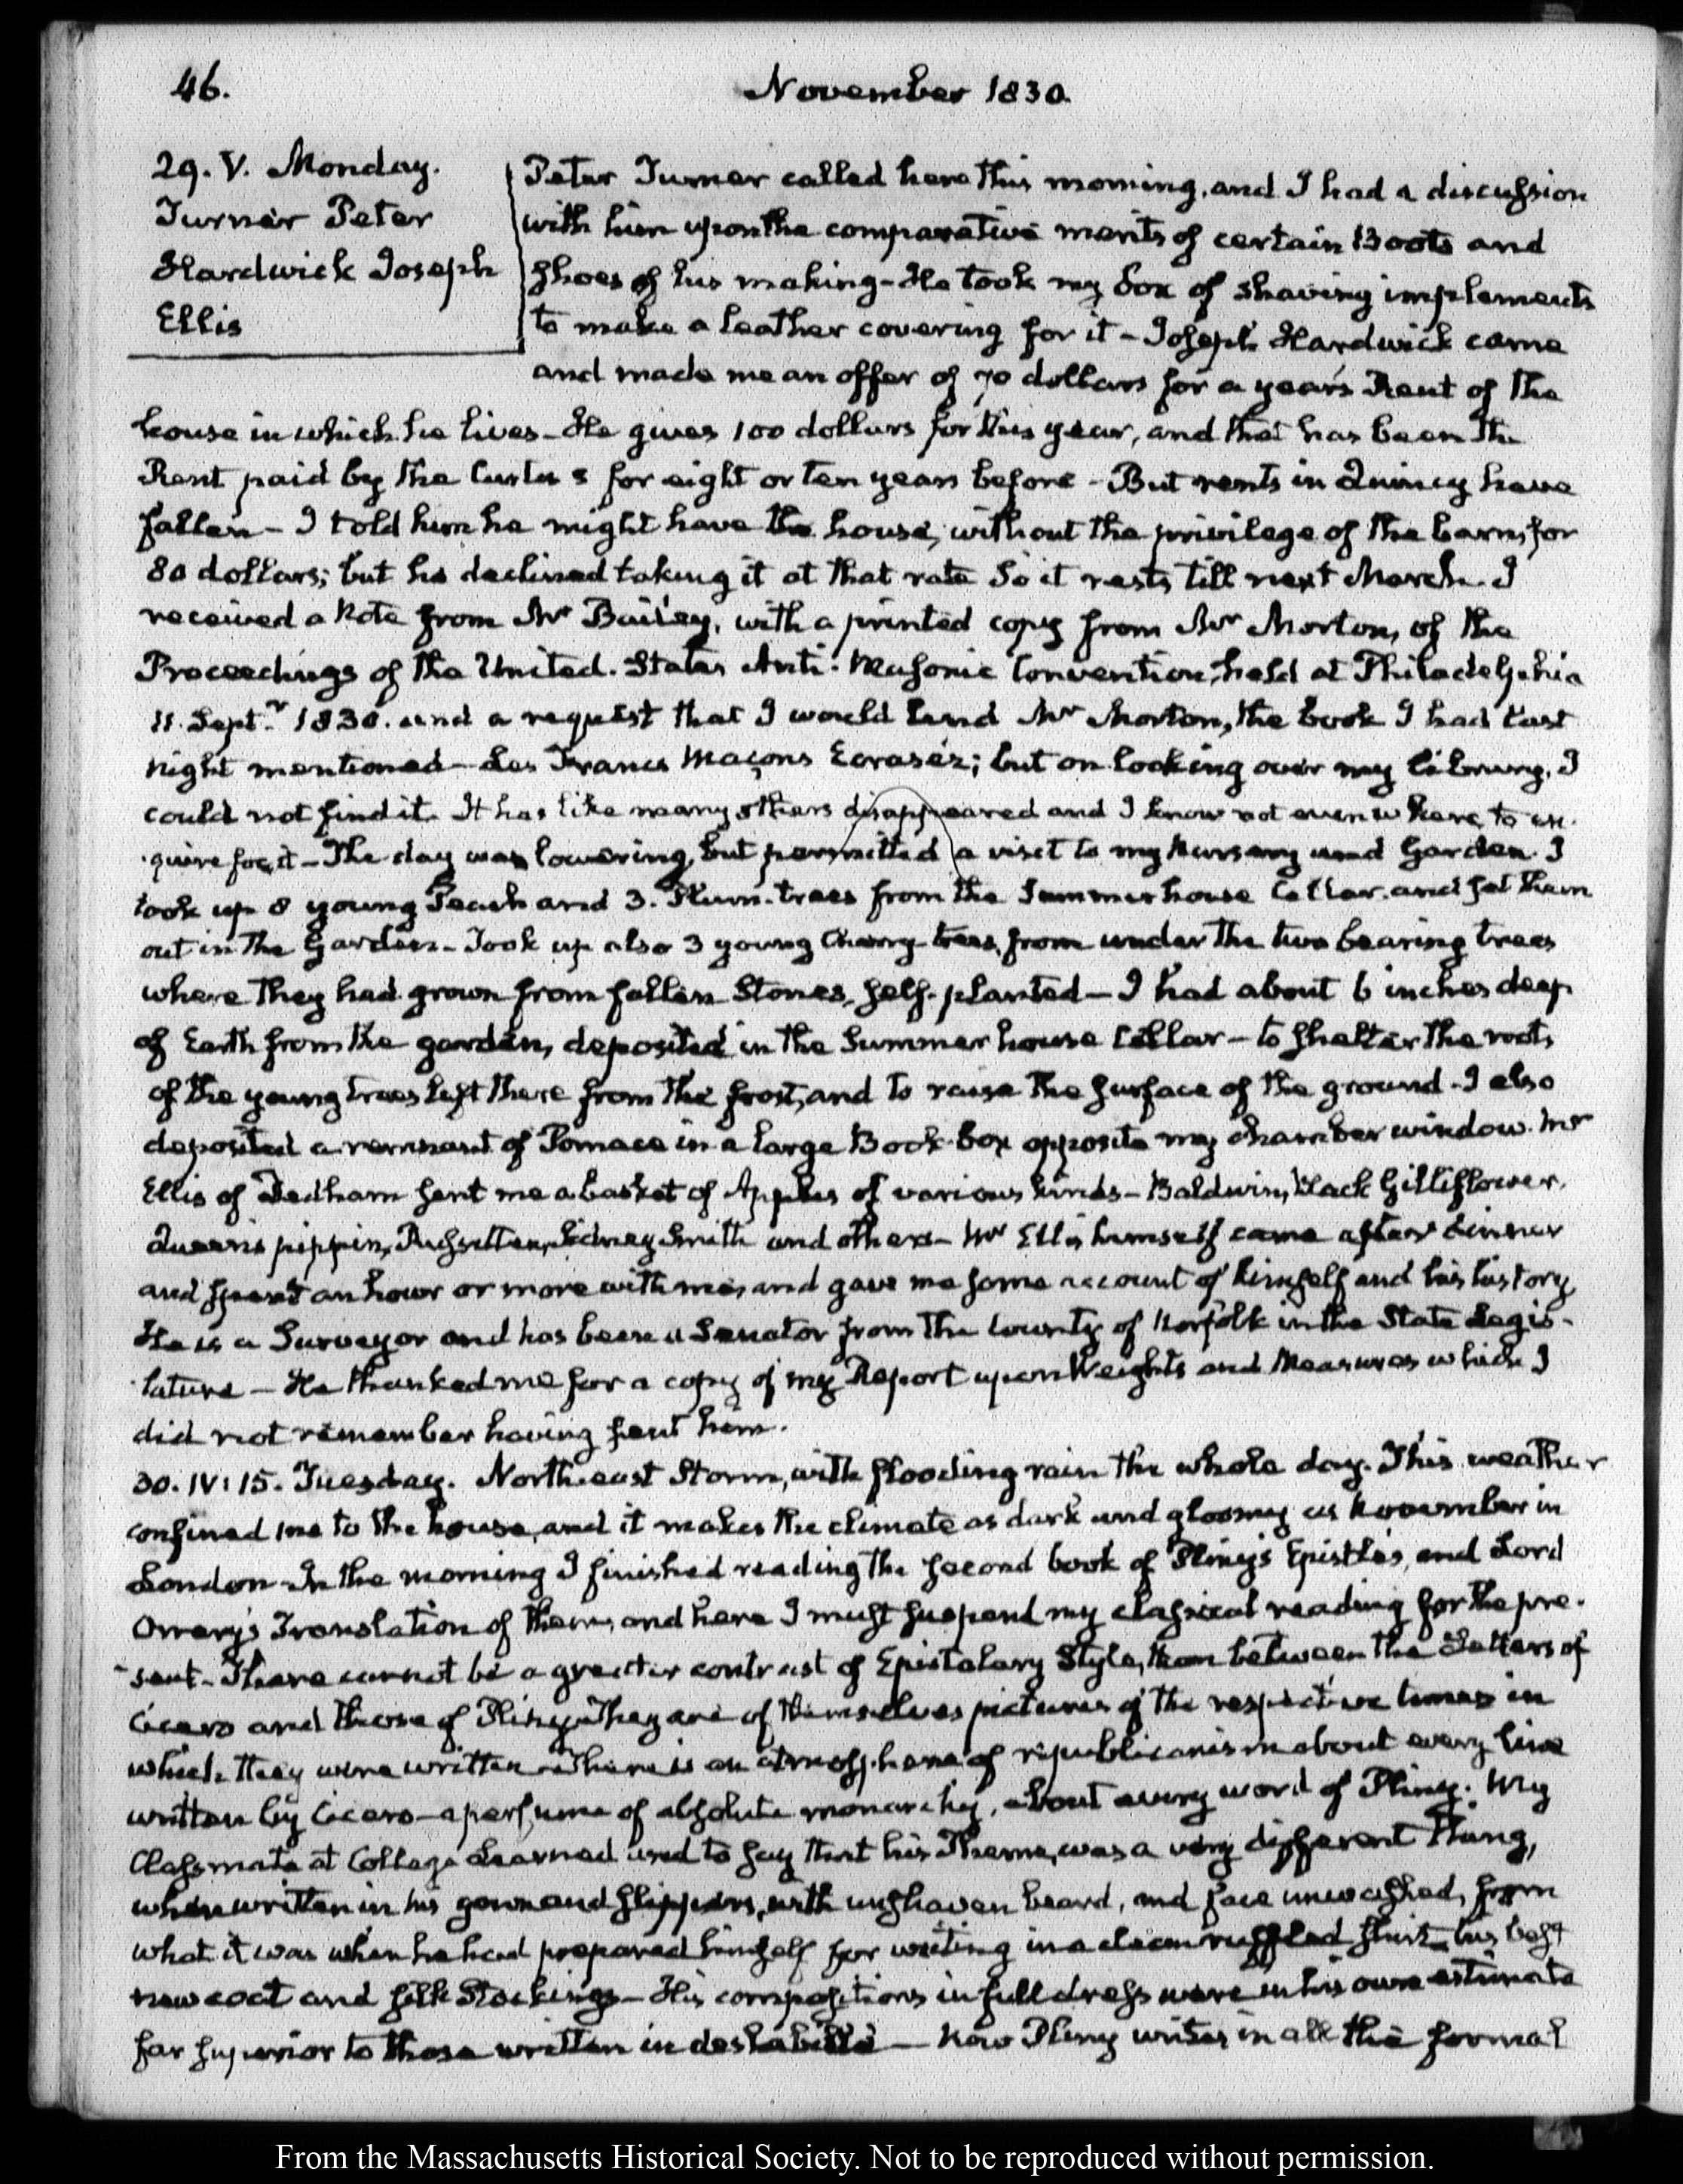 46.
November 1830.
29. V. Monday.
Turner Peter
Hardwick Joseph
Ellis
Peter Turner called here this morning, and I had a discussion
with him upon the comparative merits of certain Boots and
shoes of his making - He took my box of shaving implements
to make a leather covering for it - Joseph Hardwick came
and made me an offer of 70 dollars for a year's Rent of the
house in which he lives - He gives 100 dollars for this year, and that has been the
Rent paid by the for eight or ten years before - But rents in Quincy have
fallen - I told him he might have the house, without the privilege of the barn, for
80 dollars; but he declined taking it at that rate So it rests till next March. I
received a Note from Mr Bailey, with a printed copy from Mr Morton, of the
Proceedings of the United States Anti-Masonic Convention, held at Philadelphia
11. Septr 1830. and a request that I would lend Mr Morton, the book I had last
night mentioned - Les Francs Maçons Ecrasés; but on looking over my library, I
could not find it. It has like many others disappeared and I know not even where to en-
quire for it - The day was lowering, but permitted a visit to my Nursery and Garden. I
took up 8 young Peach and 3. Plum-trees from the Summer house Cellar. and set them
out in the Garden - Took up also 3 young Cherry trees, from under the two bearing trees
where they had grown from fallen Stones, self-planted - I had about 6 inches deep
of Earth from the garden, deposited in the Summer house Cellar - to shelter the roots
of the young trees left there from the frost, and to raise the surface of the ground - I also
deposited a remnant of Pomace in a large Book-box opposite my chamber window. Mr
Ellis of Dedham sent me a basket of Apples of various kinds - Baldwin, Black Gilliflower,
Queen's pippin, Russetten, Sidney Smith and others - Mr Ellis himself came after dinner
and spent an hour or more with me, and gave me some account of himself and his history
He is a Surveyor and has been a Senator from the County of Norfolk in the State Legis-
lature - He thanked me for a copy of my Report upon Weights and Measures which I
did not remember having sent him.
30. IV: 15. Tuesday. North-east Storm, with flooding rain the whole day. This weather
confined me to the house, and it makes the climate as dark and gloomy as November in
London - In the morning I finished reading the second book of Pliny's Epistles, and Lord
Orrery's Translation of them, and here I must suspend my classical reading for the pre-
sent - There cannot be a greater contrast of Epistolary Style, than between the Letters of
Cicero and those of Pliny. They are of themselves pictures of the respective times in
which they were written - There is an atmosphere of republicanism about every line
written by Cicero - a perfume of absolute monarchy, about every word of Pliny. My
Classmate at College Learned used to say that his Theme, was a very different thing,
when written in his gown and slippers, with unshaven beard, and face unwashed, from
what it was when he had prepared himself for writing in a clean ruffled shirt, his best
new coat and silk Stockings - His compositions in full dress were in his own estimate
far superior to those written in deshabillé - Now Pliny writes in all the formal
From the Massachusetts Historical Society. Not to be reproduced without permission.